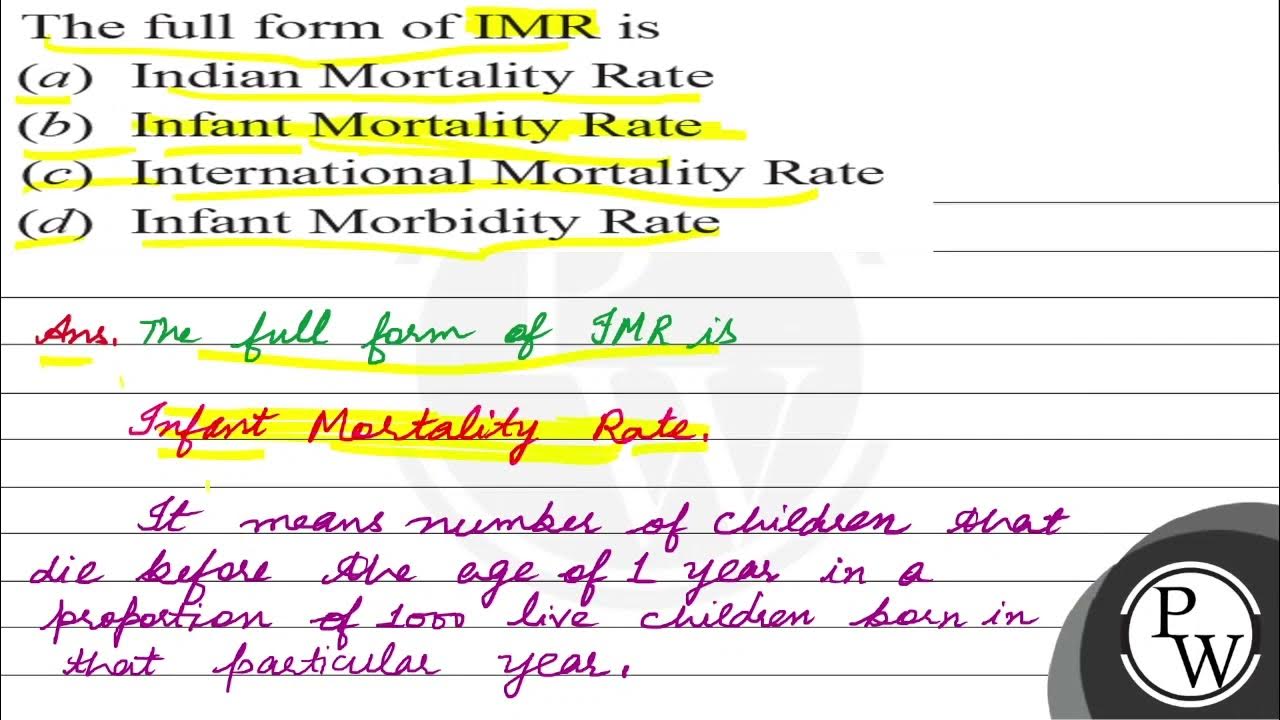 The full form of IMR is
(a) Indian Mortality Rate
(b) Infant Mortality Rate
(c) International Mortality Rate
(d) Infant Morbidity Rate
Ans. The full form of IMR is
Infant Mortality Rate.
It means number of children that
die before the age of 1 year in a
proportion of 1000 live children born in
that particular year.
P
W
P
W